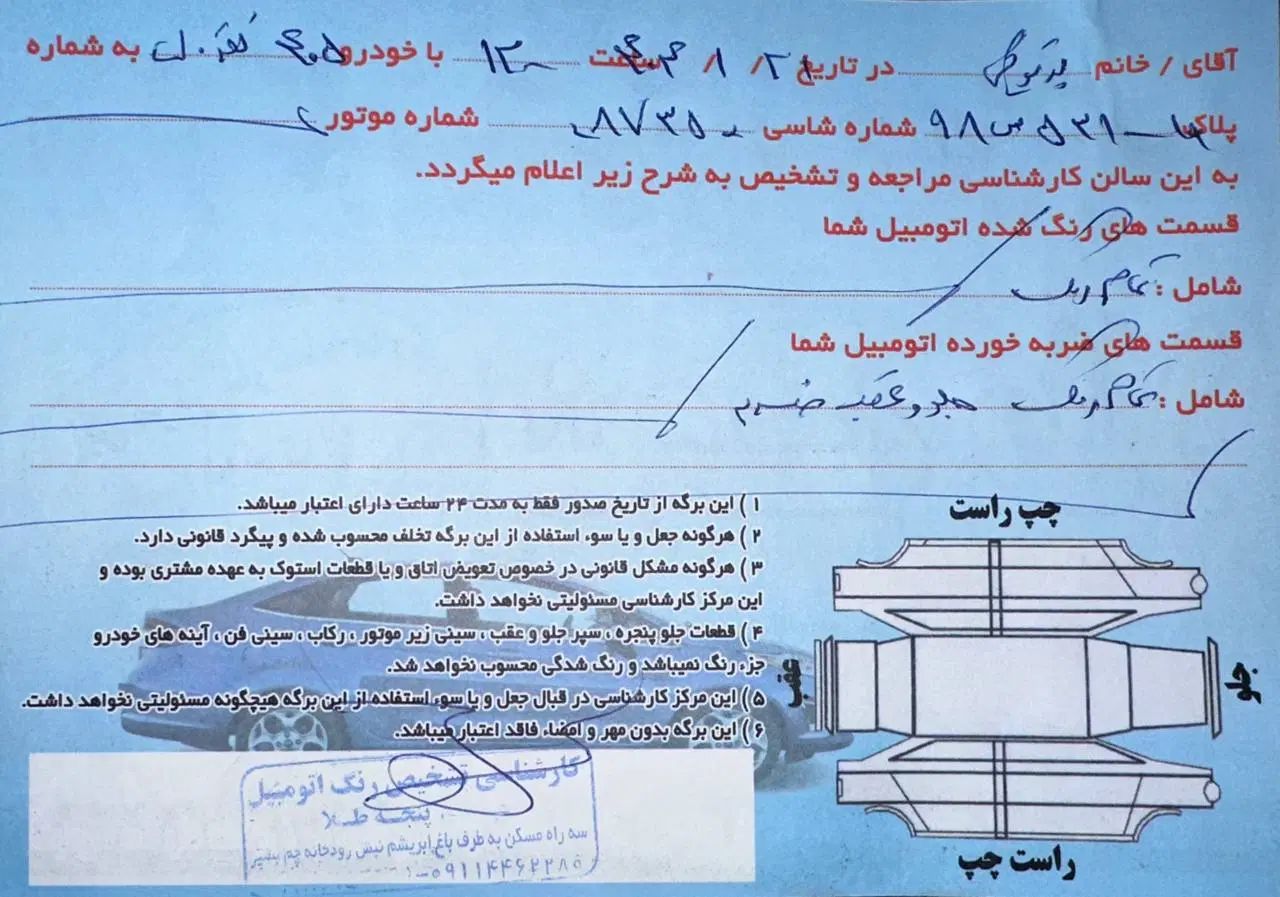 آقای / خانم در تاریخ ۲۱ / ۱ / ۴۰۳ ساعت ۱۳۰۰ با خودرو ۴۰۵ نقره‌ای به شماره
پلاک ۹۸ س ۵۳۱ شماره شاسی ۸۷۳۵۰۰ شماره موتور
به این سالن کارشناسی مراجعه و تشخیص به شرح زیر اعلام میگردد.
قسمت های رنگ شده اتومبیل شما
شامل : تمام رنگ
قسمت های ضربه خورده اتومبیل شما
شامل : تمام رنگ جلو و عقب ضربه
۱ ) این برگه از تاریخ صدور فقط به مدت ۲۴ ساعت دارای اعتبار میباشد.
۲ ) هرگونه جعل و یا سوء استفاده از این برگه تخلف محسوب شده و پیگرد قانونی دارد.
۳ ) هرگونه مشکل قانونی در خصوص تعویض اتاق و یا قطعات استوک به عهده مشتری بوده و
این مرکز کارشناسی مسئولیتی نخواهد داشت.
۴ ) قطعات جلو پنجره ، سپر جلو و عقب ، سینی زیر موتور ، رکاب ، سینی فن ، آینه های خودرو
جزء رنگ نمیباشد و رنگ شدگی محسوب نخواهد شد.
۵ ) این مرکز کارشناسی در قبال جعل و یا سوء استفاده از این برگه هیچگونه مسئولیتی نخواهد داشت.
۶ ) این برگه بدون مهر و امضاء فاقد اعتبار میباشد.
چپ راست
جلو
عقب
راست چپ
کارشناسی تشخیص رنگ اتومبیل
پنجه طلا
سه راه مسکن به طرف باغ ابریشم نبش رودخانه